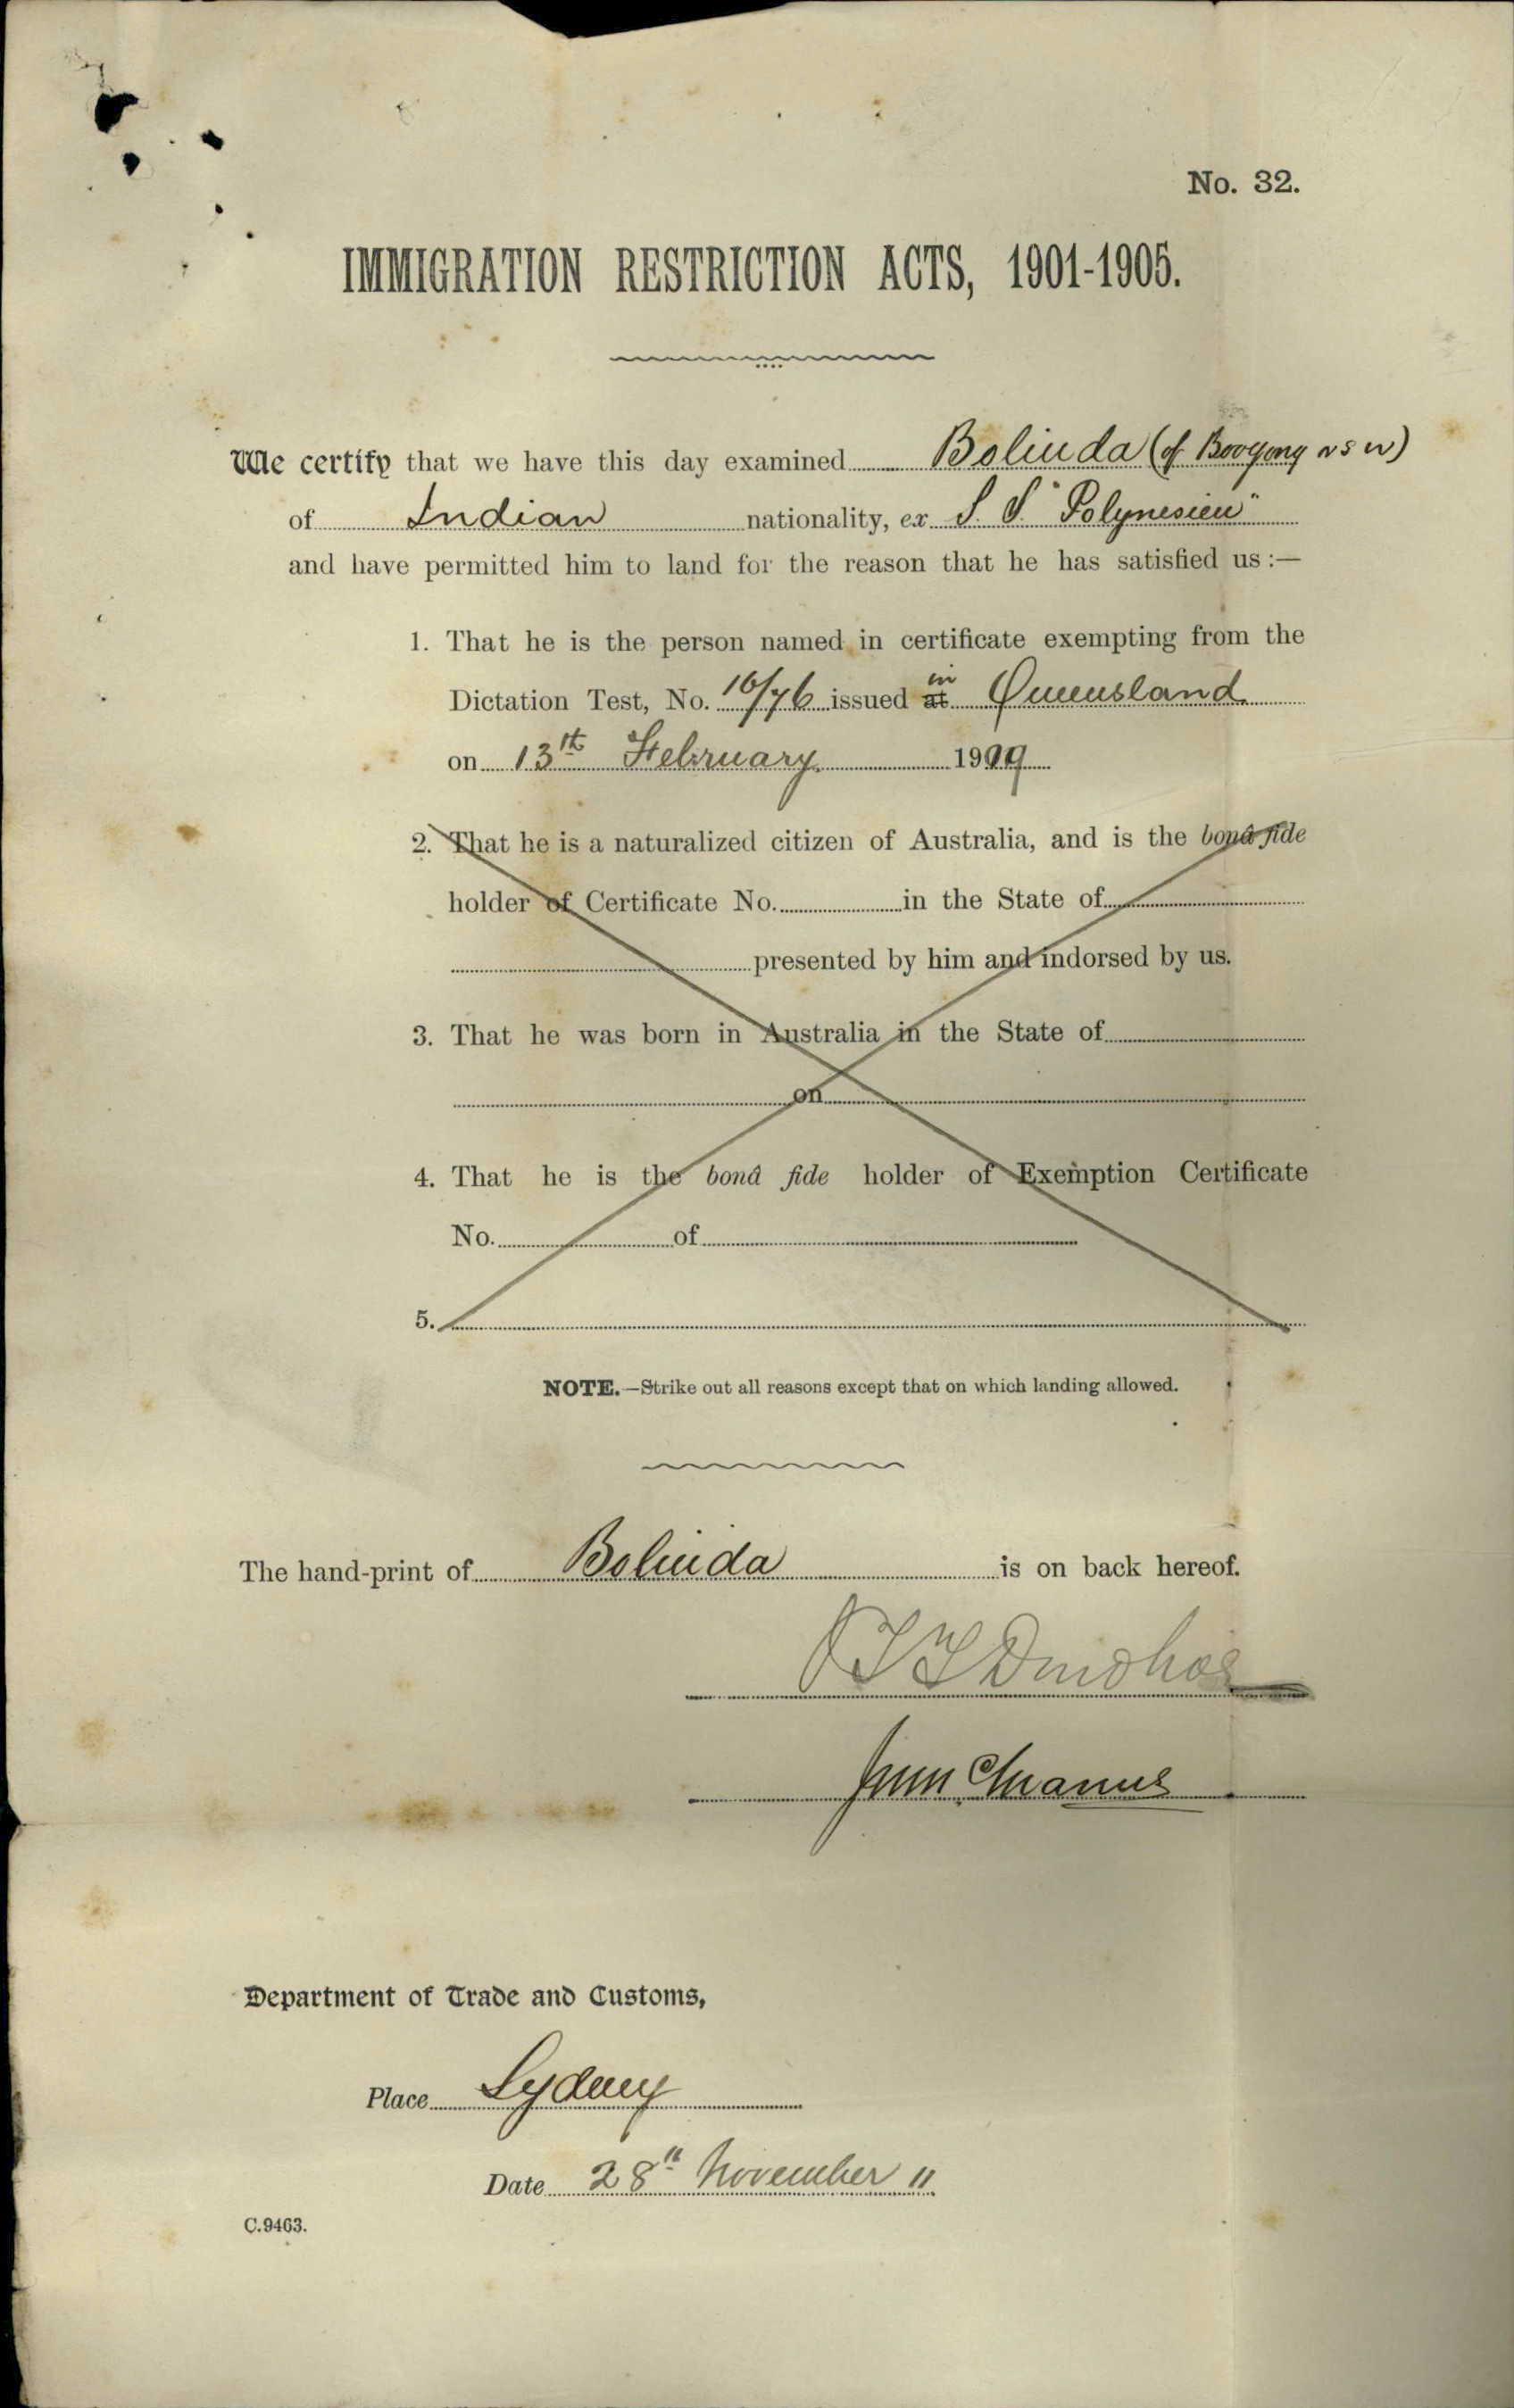 No. 32.
IMMIGRATION RESTRICTION ACTS, 1901-1905.
We certify that we have this day examined Bolinda (of Boogong NSW)
of Indian nationality, ex S. S. "Polynesien"
and have permitted him to land for the reason that he has satisfied us :—
1. That he is the person named in certificate exempting from the
in
Dictation Test, No. 10/76 issued at Queensland
on 13th February 1909
2. That he is a naturalized citizen of Australia, and is the bonâ fide
holder of Certificate No. in the State of
presented by him and indorsed by us.
3. That he was born in Australia in the State of
on
4. That he is the bonâ fide holder of Exemption Certificate
No. of
5.
NOTE.—Strike out all reasons except that on which landing allowed.
The hand-print of Bolinda is on back hereof.
Donohoe
Department of Trade and Customs,
Place Sydney
Date 28th November 11
C.9463.